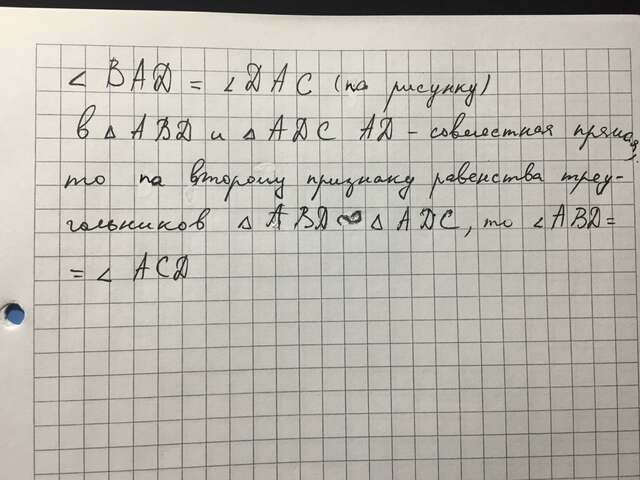 ∠ BAD = ∠ DAC (по рисунку)
В △ ABD и △ ADC AD - совместная прямая,
то по второму признаку равенства треу-
гольников △ ABD ∾ △ ADC, то ∠ABD =
= ∠ ACD